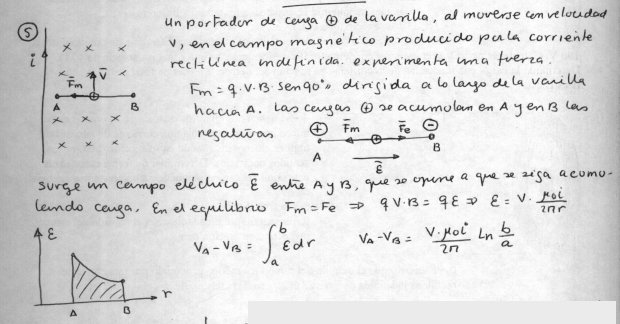 ⑤
un portador de carga ⊕ de la varilla, al moverse con velocidad
v, en el campo magnético producido por la corriente
rectilínea indefinida. experimenta una fuerza.
Fm = q·v·B·sen90°,, dirigida a lo largo de la varilla
hacia A. Las cargas ⊕ se acumulan en A y en B las
negativas
i
x x x
x x x
F̄m v̄
A ⊕ B
x x x
x x x
⊕ F̄m F̄e ⊖
A ⊕ B
ε̄
surge un campo eléctrico ε̄ entre A y B, que se opone a que se siga acumu-
lando carga. En el equilibrio Fm = Fe ⇒ q v·B = qε ⇒ ε = v· μoi/2πr
VA - VB = ∫ₐᵇ ε dr VA - VB = v·μoi/2π Ln b/a
ε
r
A B